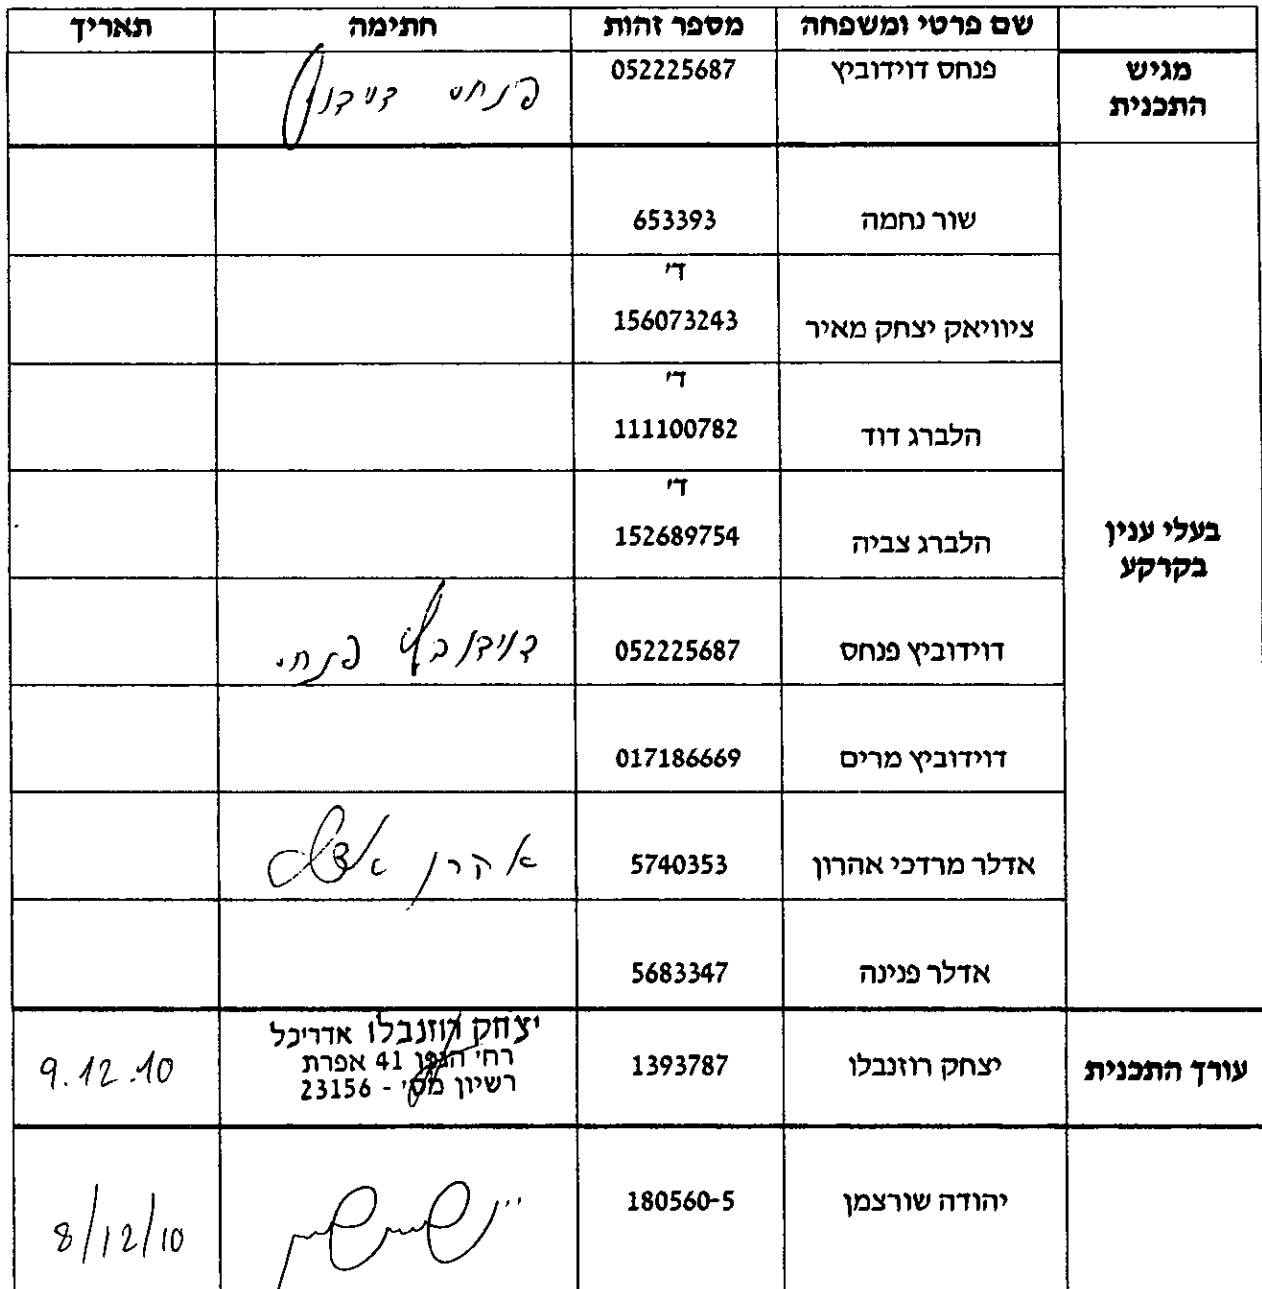 שם פרטי ומשפחה מספר זהות חתימה תאריך
מגיש התכנית פנחס דוידוביץ 052225687 פנחס דוידוביץ
שור נחמה 653393
ד'
ציוויאק יצחק מאיר 156073243
ד'
הלברג דוד 111100782
ד'
הלברג צביה 152689754
בעלי ענין
בקרקע
דוידוביץ פנחס 052225687 דוידוביץ פנחס
דוידוביץ מרים 017186669
אדלר מרדכי אהרון 5740353 אהרן אדלר
אדלר פנינה 5683347
עורך התכנית יצחק רוזנבלו 1393787 יצחק רוזנבלו אדריכל
רח' הגפן 41 אפרת
רשיון מס' - 23156
9.12.10
יהודה שורצמן 180560-5 8/12/10